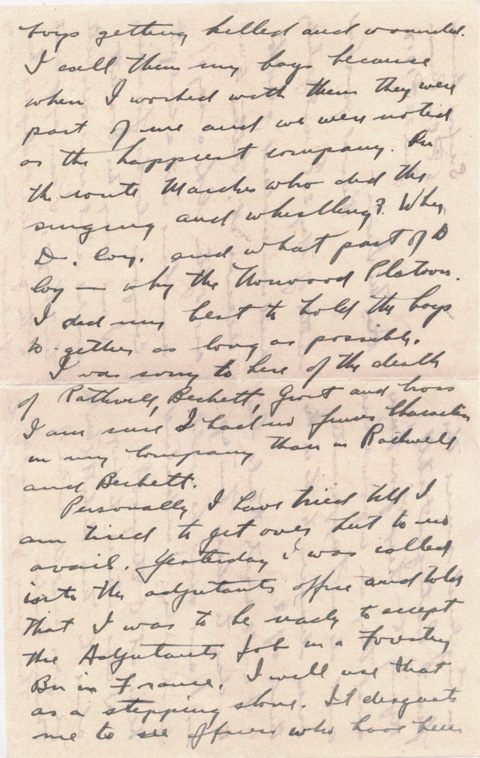 boys getting killed and wounded.
I call them my boys because
when I worked with them they were
part of me and we were noted
as the happiest company. On
the route Marches who did the
singing and whistling? Why
D. Coy. and what part of D
Coy — why the Norwood Platoon.
I did my best to hold the boys
to gether as long as possible.
I was sorry to here of the death
of Rathwell, Beckett, Grout and
I am sure I had no finer Characters
in my Company than in
and Beckett.
Personally I have tried till I
am tired to get over but to no
avail. Yesterday I was called
into the adjutants office and told
that I was to be ready to accept
the Adjutants job in a Forestry
Bn in France. I will use that
as a stepping stone. It disgusts
me to see officers who have been